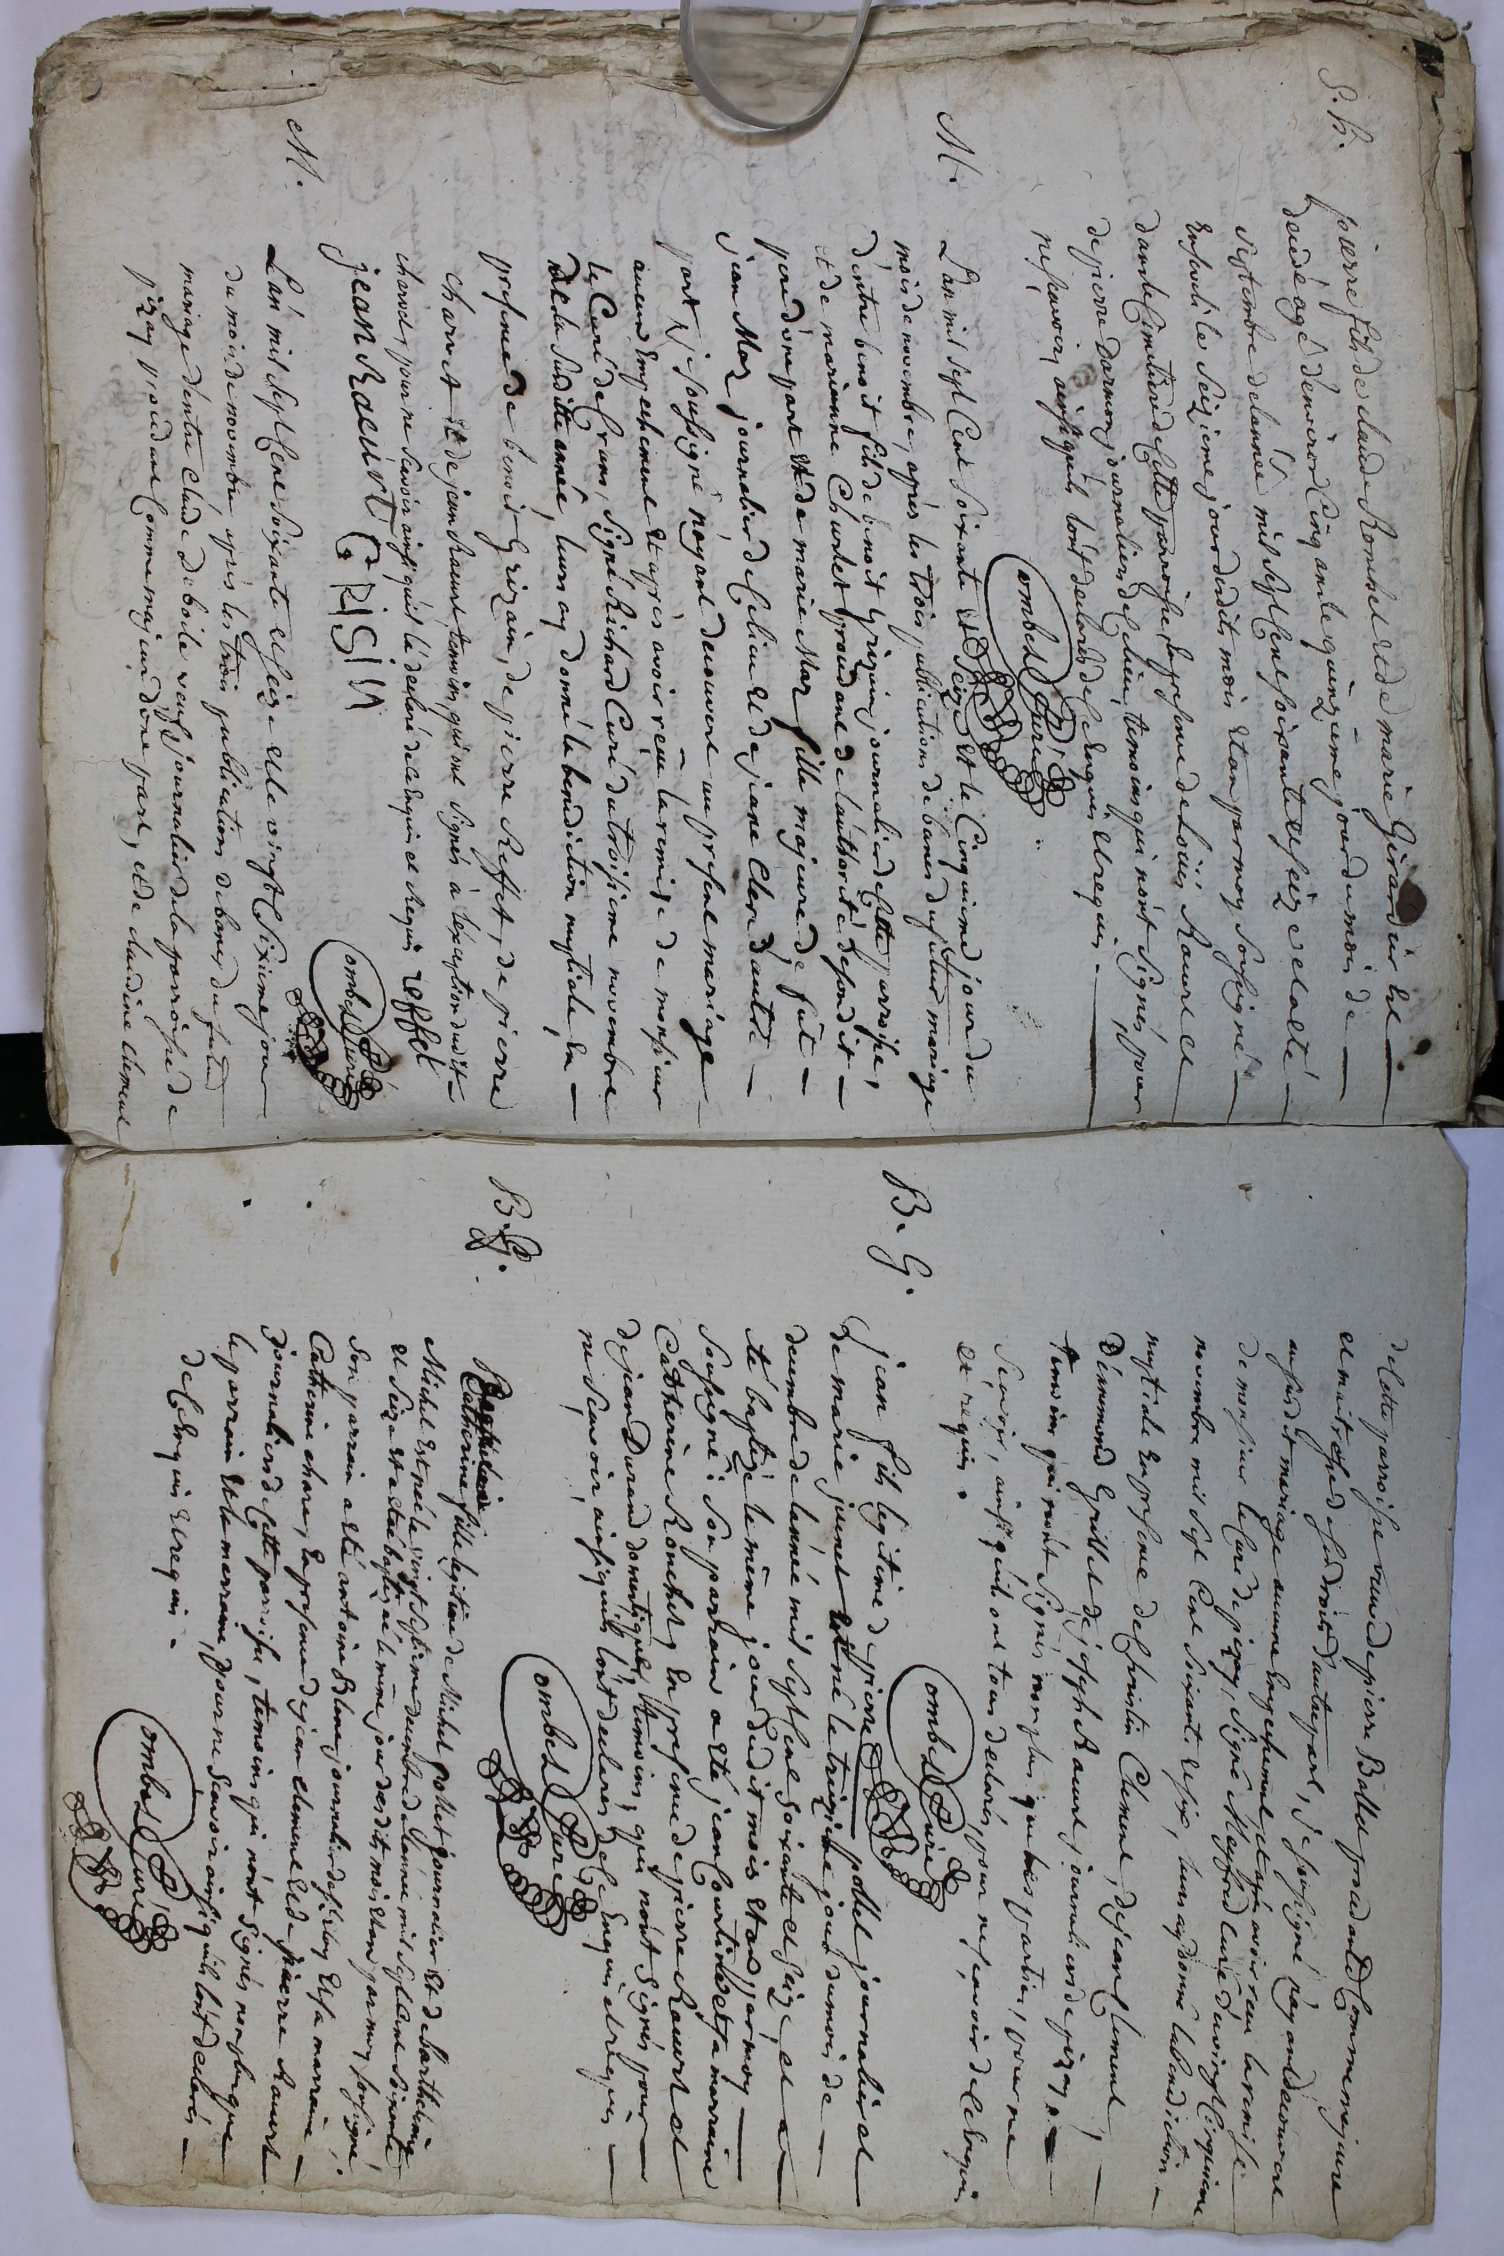 S. h.
pierre fils de claude Ronchet et de marie Girardin est
decedé agé d'environ Cinquante quinzieme jour du mois de
septembre de lannée mil sept Cent soixante et seize et a été
Enseveli le seizieme jour dudit mois et an par moy soussigné
dans le Cimetiere de Cette parroisse, En presence de Loüis Raourt et
de pierre Darmon journaliers de Ce lieu, temoins qui n'ont signés pour
ne sçavoir, ainsi qu'ils l'ont declarés de Ce Enquis et requis.
ombet Curé
M.
L'an mil sept Cent soixante et Seize et le Cinquieme jour du
mois de novembre, apres les trois publications de bancs du futur mariage
d'entre benoit fils de benoit Grizain journalier de Cette parroisse,
et de marianne Charlet procedant de l'authorité de sondit
pere d'une part et de marie Mar fille majeure de fût
jean Mar journalier de Ce lieu et de jeane Clere d'autre
part, je soussigné n'ayant decouvert au present mariage
aucun Empechement et apres avoir reçu la remise de monsieur
le Curé de Crans, signé Richard Curé du troisieme novembre
de la susditte année, leurs ay donné la benediction nuptiale, En
presence de benoit Grizain, de pierre Reffet, de pierre
Charvet et de jean Raourt, temoins, qui ont signés à l'exception dudit
charvet, pour ne sçavoir ainsi qu'il l'a declaré de Ce Enquis et Requis reffet
jean Raourt GRISIN
ombet Curé
M.
L'an mil sept Cent soixante et seize et le vingt Sixieme jour
du mois de novembre apres les trois publications de bancs du futur
mariage d'entre Claude Deboile veuf journalier de la parroisse de
pizay procedant Comme majeur d'une part, et de claudine Clement
de Cette parroisse veuve de pierre Ballet procedant Comme majeure
et maitresse de ses droits d'autre part, je soussigné n'ayant decouvert
aususdit mariage aucune Empechement, et apres avoir reçu la remise
de monsieur le Curé de pizay, signé Curé du vingt Cinquieme
novembre mil sept Cent soixante et seize, leurs ay donné la Benediction
nuptiale En presence de Christin Clement, de jean Clement,
D'éanmond Grillet de joseph Raourt journaliers de pizay,
temoins qui n'ont signés non plus que les parties, pour ne
sçavoir, ainsi qu'ils ont tous declaré, pour ne sçavoir de Ce Enquis
et requis.
ombet Curé
B. G.
jean fils legitime de pierre pollet journalier et
de marie junet est né le treizieme jour du mois de
decembre de lannée mil sept Cent soixante et seize, et a
été baptizé le même jour dudit mois et an par moy
soussigné : Son parrain a été jean Courtine et sa marraine
Catherine Ronchet, En presence de pierre Raourt et
de jean Durand domestiques, temoins, qui n'ont signés pour
ne sçavoir, ainsi qu'ils l'ont declarés de Ce Enquis et requis
ombet Curé
B. F.
Catherine fille legitime de Michel pollet journalier et de Barthelmie
Michel est née le vingt septieme decembre de lannée mil sept Cent soixante
et seize et a été baptizée le même jour desdits mois et an par moy soussigné,
Son parrain a été antoine Blanc journalier de et sa marraine
Catherine charvet, En presence de jean clement et de pierre Raourt
journaliers de Cette parroisse, temoins qui n'ont signés non plus que
le parrain et la marraine, pour ne sçavoir ainsi qu'ils l'ont declarés
de Ce Enquis et requis.
ombet Curé